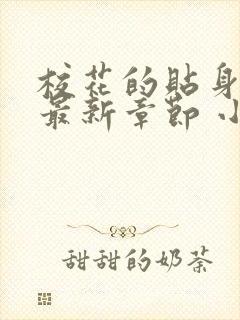 校花的贴身
最新章节 小
甜甜的奶茶